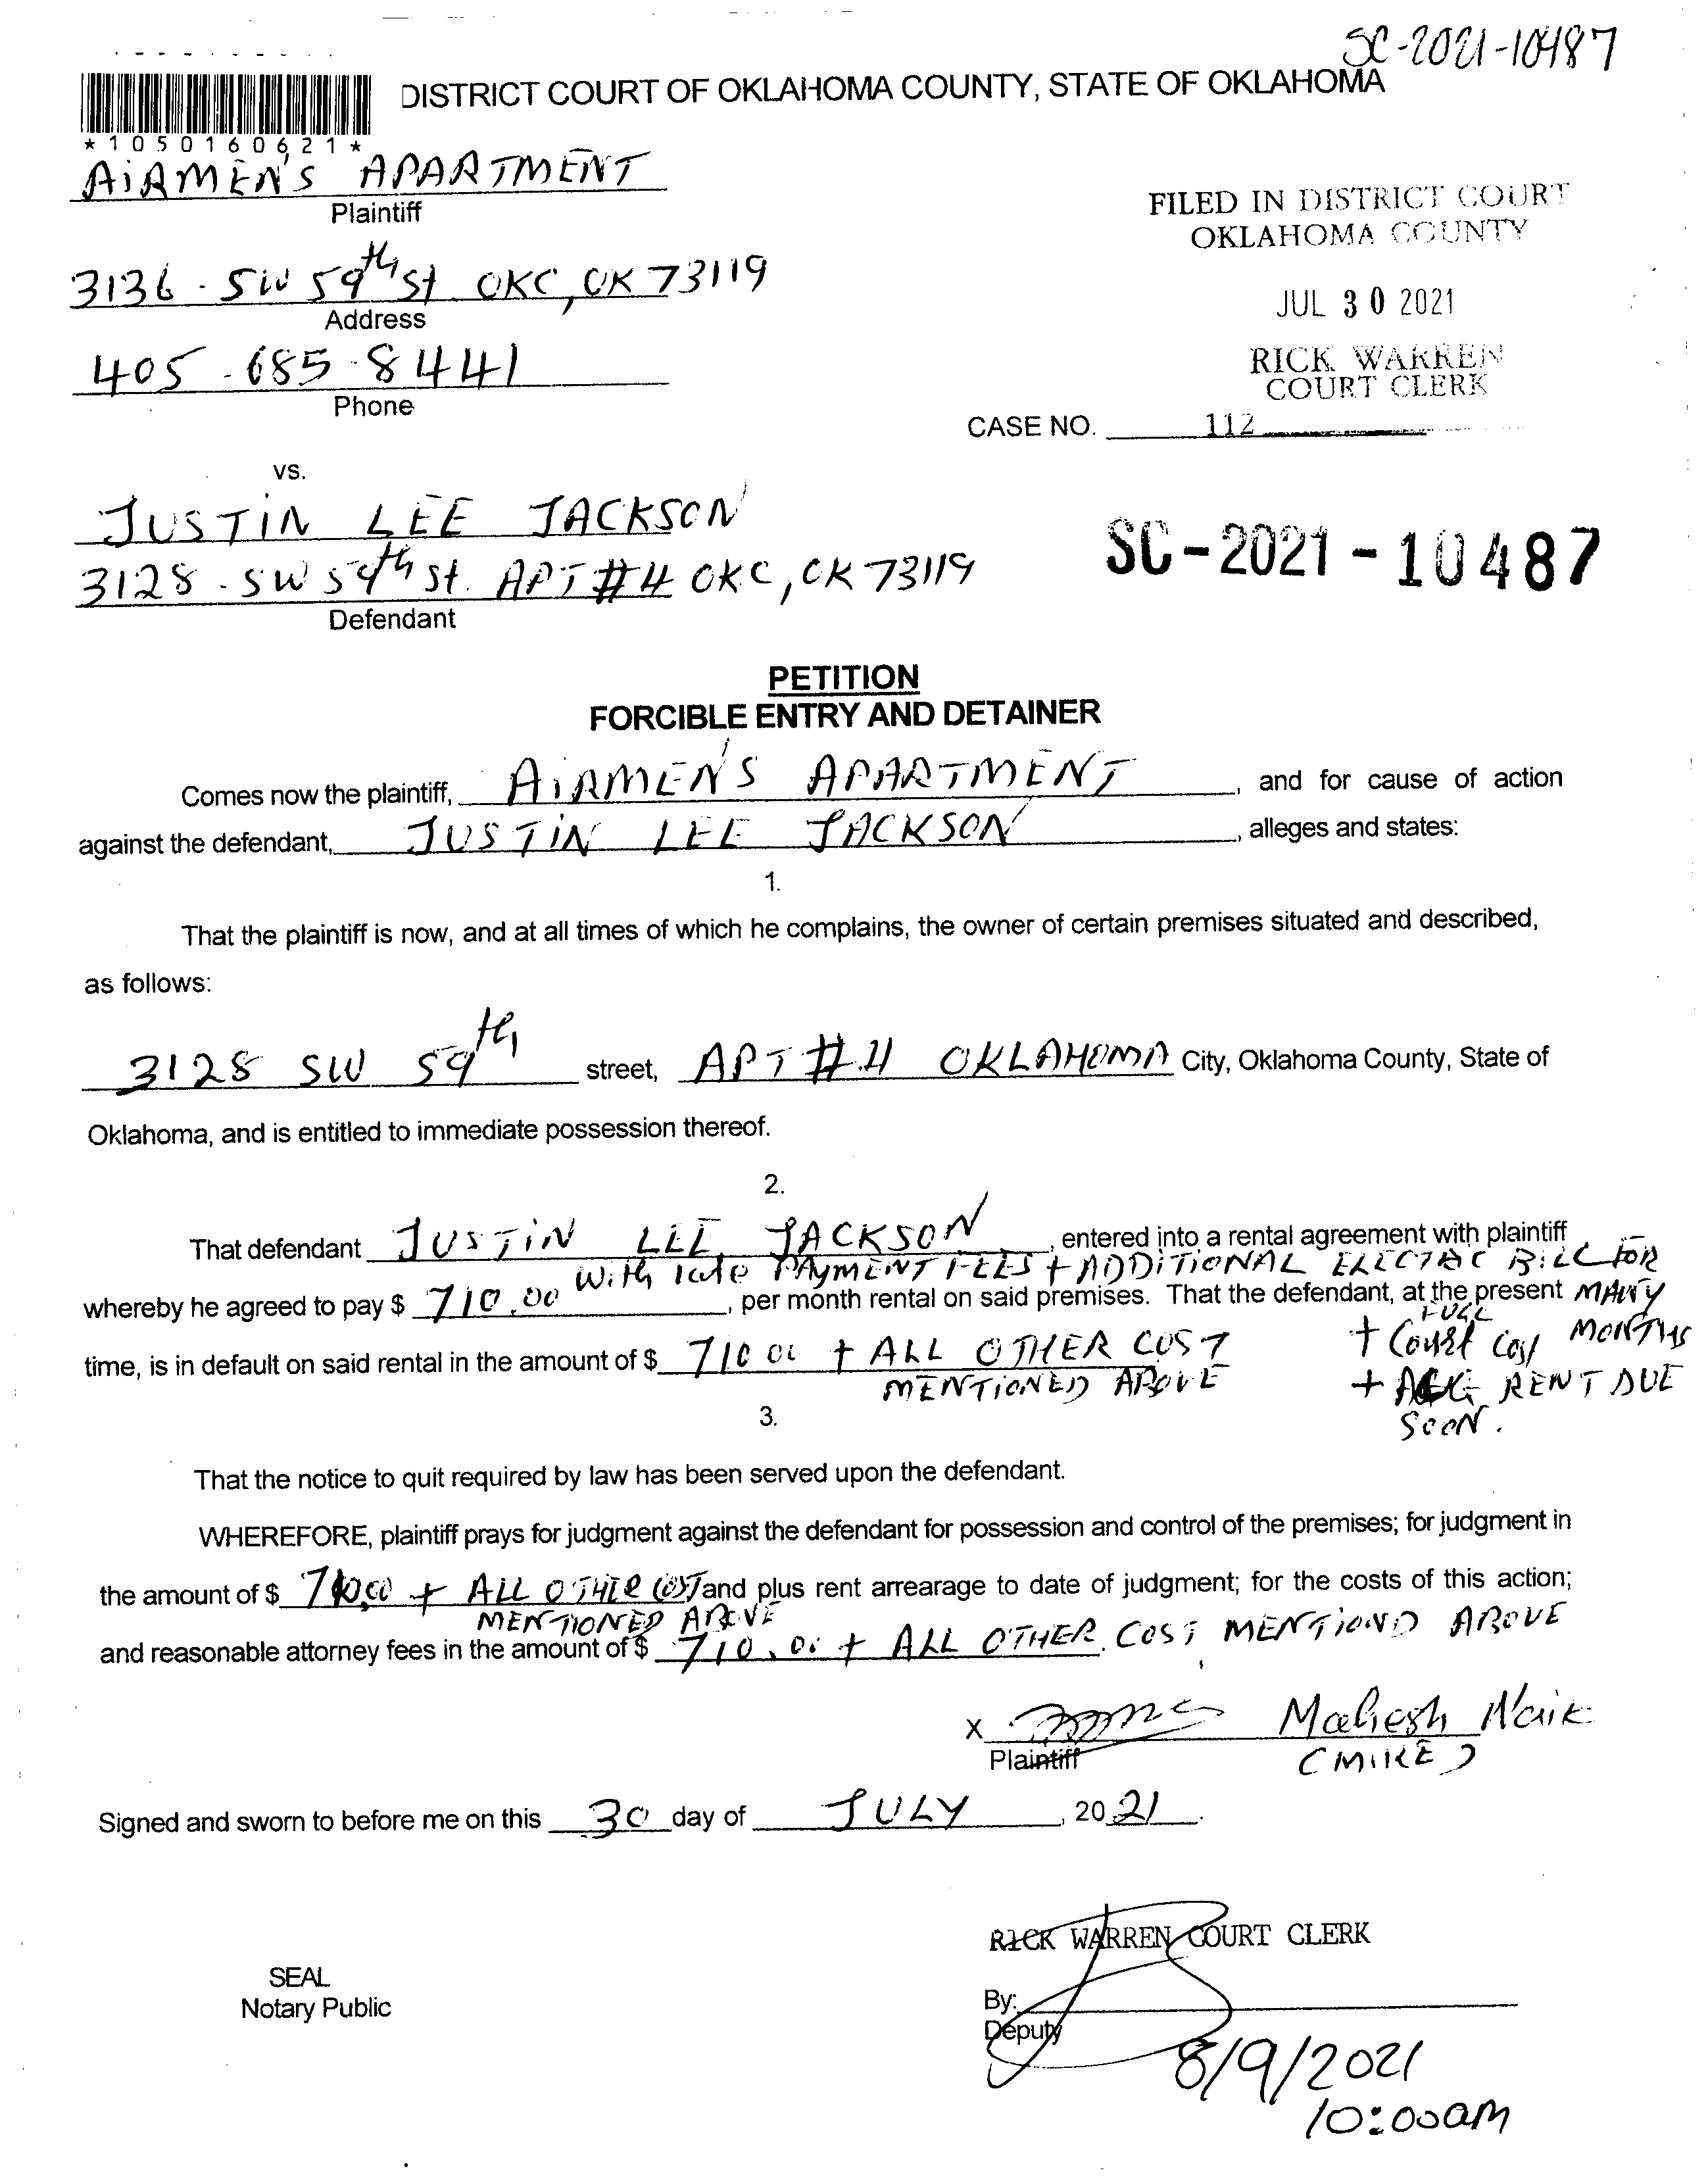 SC-2021-10487
DISTRICT COURT OF OKLAHOMA COUNTY, STATE OF OKLAHOMA
*1050160621*
AiRMEN'S APARTMENT
Plaintiff
FILED IN DISTRICT COURT
OKLAHOMA COUNTY
3136 - SW 59th St. OKC, OK 73119
Address
JUL 30 2021
405-685-8441
Phone
RICK WARREN
COURT CLERK
CASE NO. 112
vs.
JUSTIN LEE JACKSON
SC-2021-10487
3128 - SW 59th St. APT #4 OKC, OK 73119
Defendant
PETITION
FORCIBLE ENTRY AND DETAINER
Comes now the plaintiff, AiRMEN'S APARTMENT, and for cause of action
against the defendant, JUSTiN LEE JACKSON, alleges and states:
1.
That the plaintiff is now, and at all times of which he complains, the owner of certain premises situated and described,
as follows:
3128 SW 59th street, APT #4 OKLAHOMA City, Oklahoma County, State of
Oklahoma, and is entitled to immediate possession thereof.
2.
That defendant JUSTiN LEE JACKSON, entered into a rental agreement with plaintiff
With late PAYMENT FEES + ADDiTiONAL ELECTRIC BiLL FOR
whereby he agreed to pay $ 710.00, per month rental on said premises. That the defendant, at the present MANY
FULL
+ Court Cost MONTHS
time, is in default on said rental in the amount of $ 710.00 + ALL OTHER COST
MENTiONED ABOVE
+ RENT DUE
SOON.
3.
That the notice to quit required by law has been served upon the defendant.
WHEREFORE, plaintiff prays for judgment against the defendant for possession and control of the premises; for judgment in
the amount of $ 710.00 + ALL OTHER COST and plus rent arrearage to date of judgment; for the costs of this action;
MENTIONED ABOVE
and reasonable attorney fees in the amount of $ 710.00 + ALL OTHER COST MENTIOND ABOVE
x Mahesh Naik
Plaintiff (MIKE)
Signed and sworn to before me on this 30 day of JULY, 2021.
RICK WARREN COURT CLERK
SEAL
Notary Public
By:
Deputy
8/9/2021
10:00am